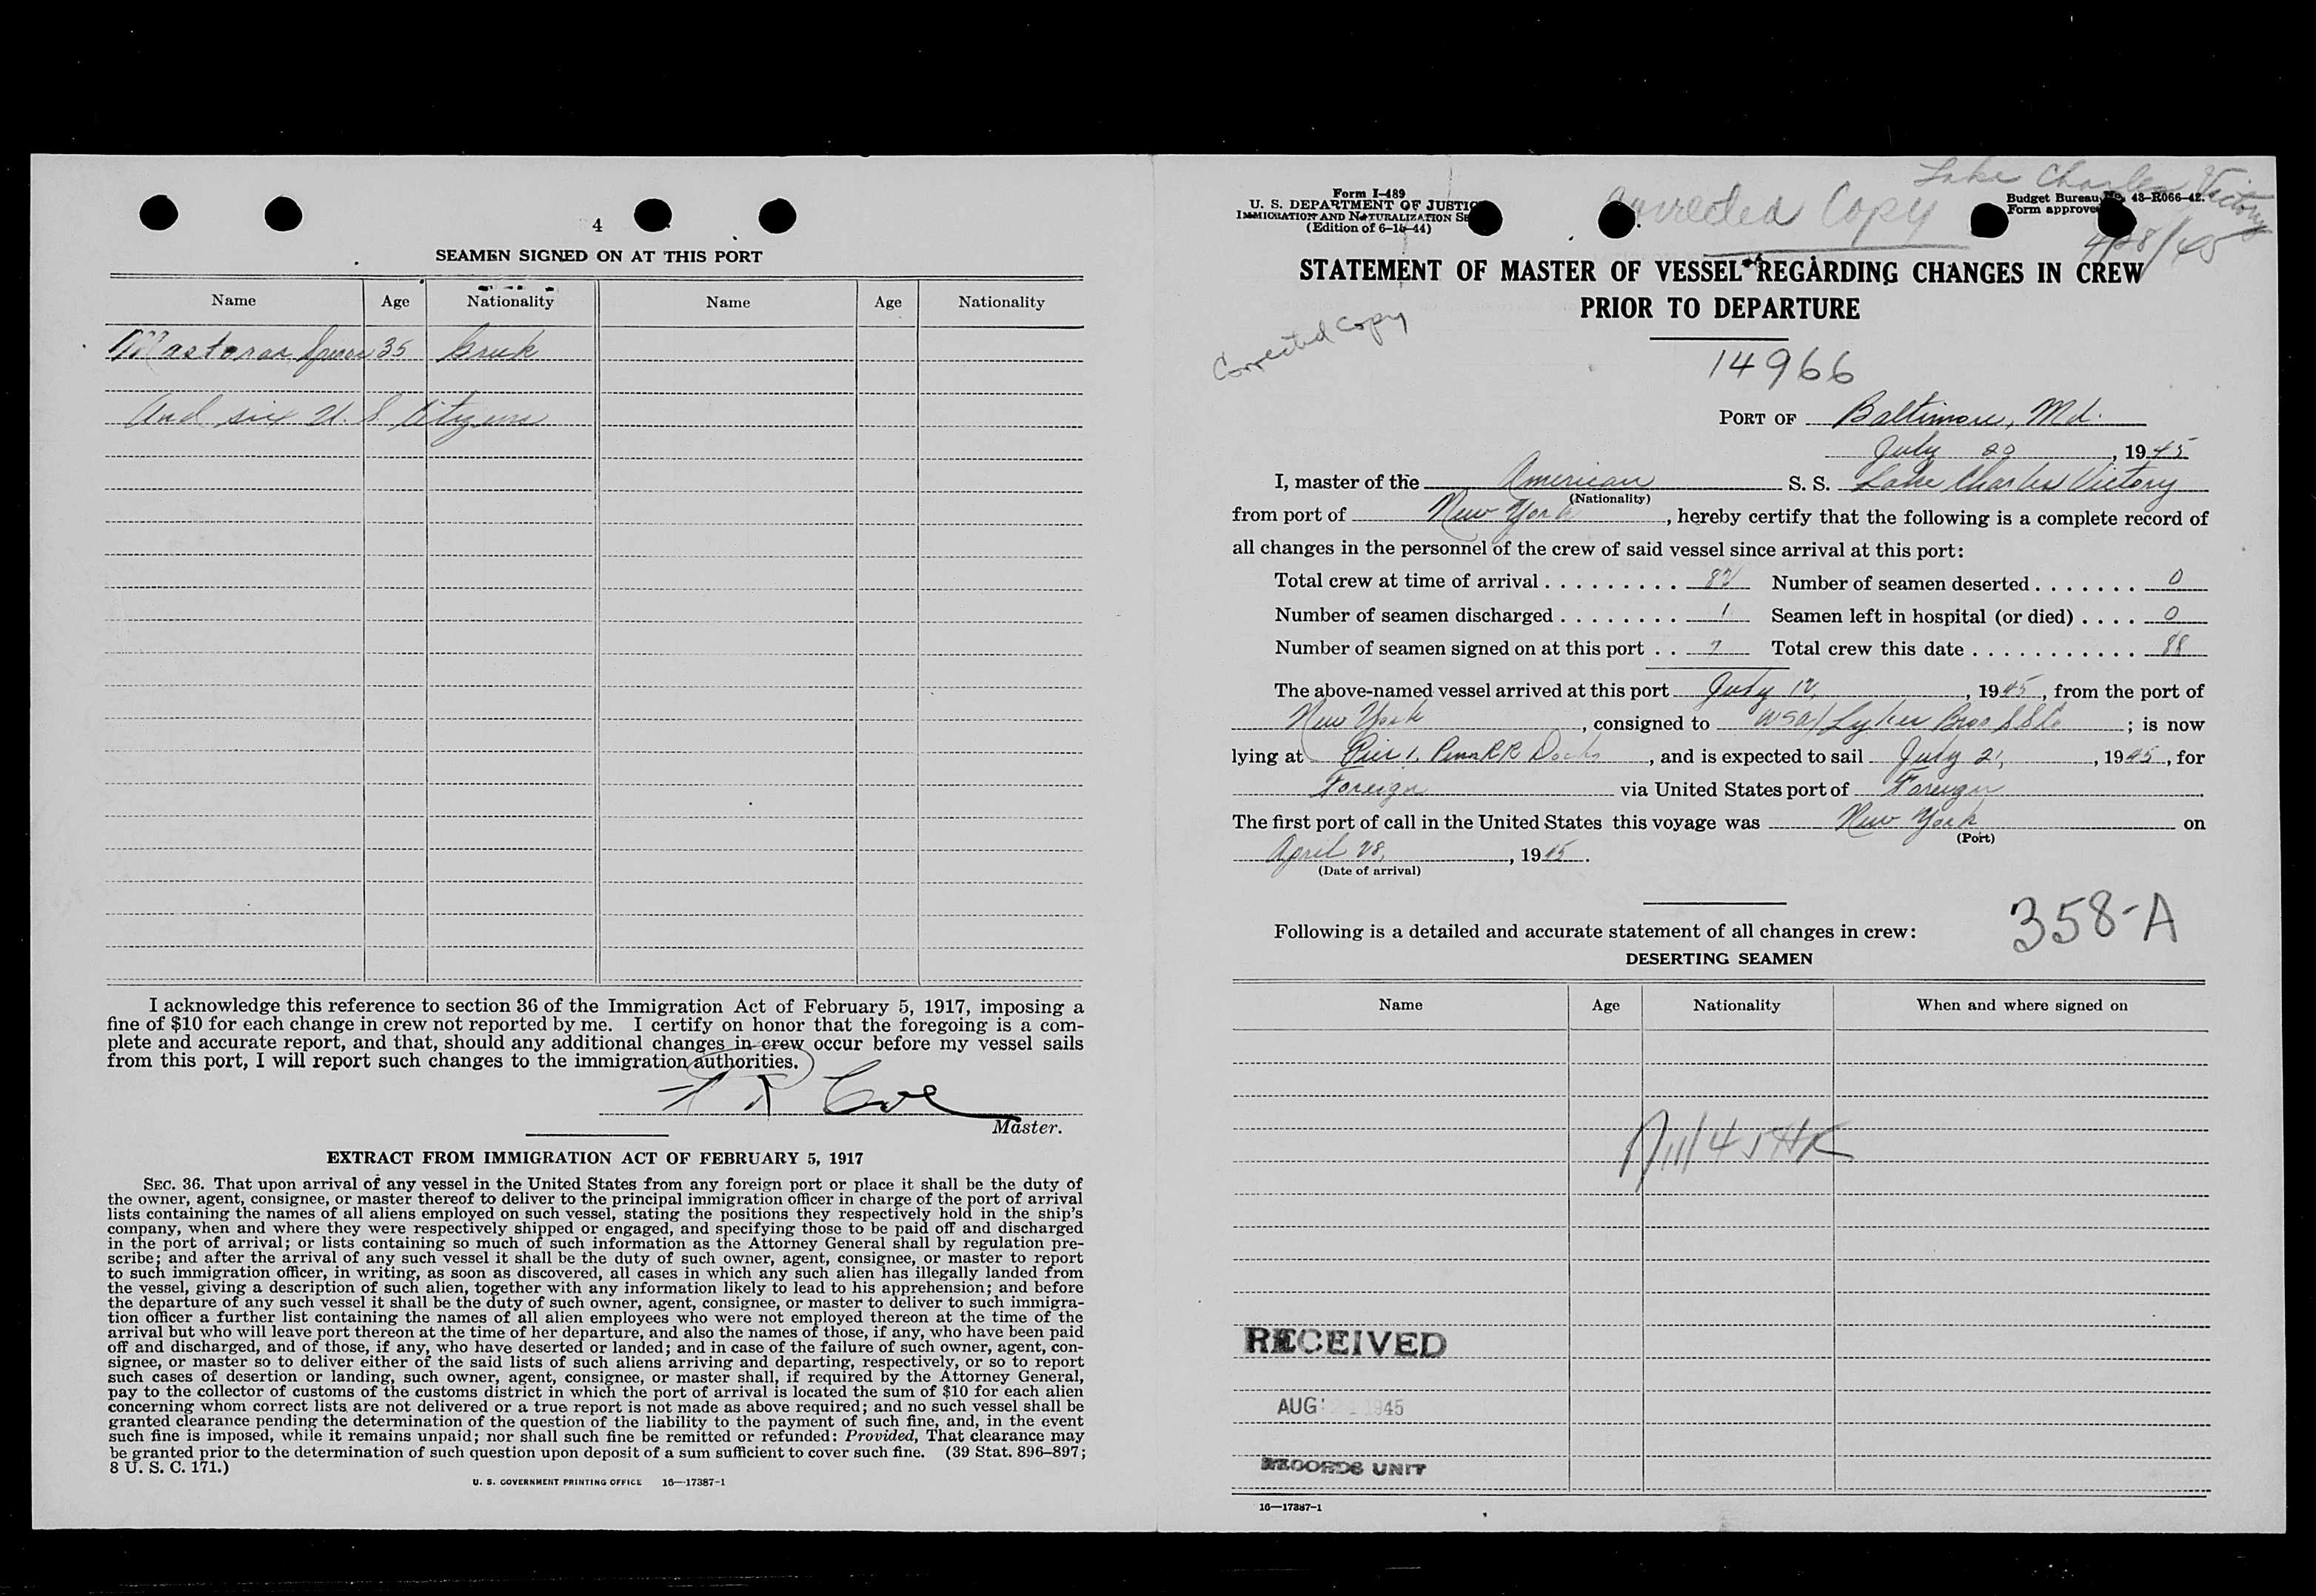 4
SEAMEN SIGNED ON AT THIS PORT
Name Age Nationality Name Age Nationality
35 Greek
And six U. S. Citizens
I acknowledge this reference to section 36 of the Immigration Act of February 5, 1917, imposing a
fine of $10 for each change in crew not reported by me. I certify on honor that the foregoing is a com-
plete and accurate report, and that, should any additional changes in crew occur before my vessel sails
from this port, I will report such changes to the immigration authorities.
Coe
Master.
EXTRACT FROM IMMIGRATION ACT OF FEBRUARY 5, 1917
SEC. 36. That upon arrival of any vessel in the United States from any foreign port or place it shall be the duty of
the owner, agent, consignee, or master thereof to deliver to the principal immigration officer in charge of the port of arrival
lists containing the names of all aliens employed on such vessel, stating the positions they respectively hold in the ship's
company, when and where they were respectively shipped or engaged, and specifying those to be paid off and discharged
in the port of arrival; or lists containing so much of such information as the Attorney General shall by regulation pre-
scribe; and after the arrival of any such vessel it shall be the duty of such owner, agent, consignee, or master to report
to such immigration officer, in writing, as soon as discovered, all cases in which any such alien has illegally landed from
the vessel, giving a description of such alien, together with any information likely to lead to his apprehension; and before
the departure of any such vessel it shall be the duty of such owner, agent, consignee, or master to deliver to such immigra-
tion officer a further list containing the names of all alien employees who were not employed thereon at the time of the
arrival but who will leave port thereon at the time of her departure, and also the names of those, if any, who have been paid
off and discharged, and of those, if any, who have deserted or landed; and in case of the failure of such owner, agent, con-
signee, or master so to deliver either of the said lists of such aliens arriving and departing, respectively, or so to report
such cases of desertion or landing, such owner, agent, consignee, or master shall, if required by the Attorney General,
pay to the collector of customs of the customs district in which the port of arrival is located the sum of $10 for each alien
concerning whom correct lists are not delivered or a true report is not made as above required; and no such vessel shall be
granted clearance pending the determination of the question of the liability to the payment of such fine, and, in the event
such fine is imposed, while it remains unpaid; nor shall such fine be remitted or refunded: Provided, That clearance may
be granted prior to the determination of such question upon deposit of a sum sufficient to cover such fine. (39 Stat. 896–897;
8 U. S. C. 171.)
U. S. GOVERNMENT PRINTING OFFICE 16—17387-1
Lake Charles Victory
4/28/45
Corrected Copy
Form I-489
U. S. DEPARTMENT OF JUSTIC
IMMIGRATION AND NATURALIZATION SE
(Edition of 6-14-44)
Budget Bureau No. 43-R066-42.
Form approve
STATEMENT OF MASTER OF VESSEL REGARDING CHANGES IN CREW
PRIOR TO DEPARTURE
Corrected Copy
14966
PORT OF Baltimore, Md.
July 20, 1945
I, master of the American S. S. Lake Charles Victory
(Nationality)
from port of New York, hereby certify that the following is a complete record of
all changes in the personnel of the crew of said vessel since arrival at this port:
Total crew at time of arrival . . . . . . . . . 82 Number of seamen deserted . . . . . . . 0
Number of seamen discharged . . . . . . . . 1 Seamen left in hospital (or died) . . . . 0
Number of seamen signed on at this port . . 7 Total crew this date . . . . . . . . . . . . 88
The above-named vessel arrived at this port July 12, 1945, from the port of
New York, consigned to WSA/Lykes Bros SS Co; is now
lying at Pier 1, Penn RR Docks, and is expected to sail July 21, 1945, for
Foreign via United States port of Foreign
The first port of call in the United States this voyage was New York on
(Port)
April 28, 1945.
(Date of arrival)
358-A
Following is a detailed and accurate statement of all changes in crew:
DESERTING SEAMEN
Name Age Nationality When and where signed on
RECEIVED
AUG 1945
RECORDS UNIT
16—17387-1